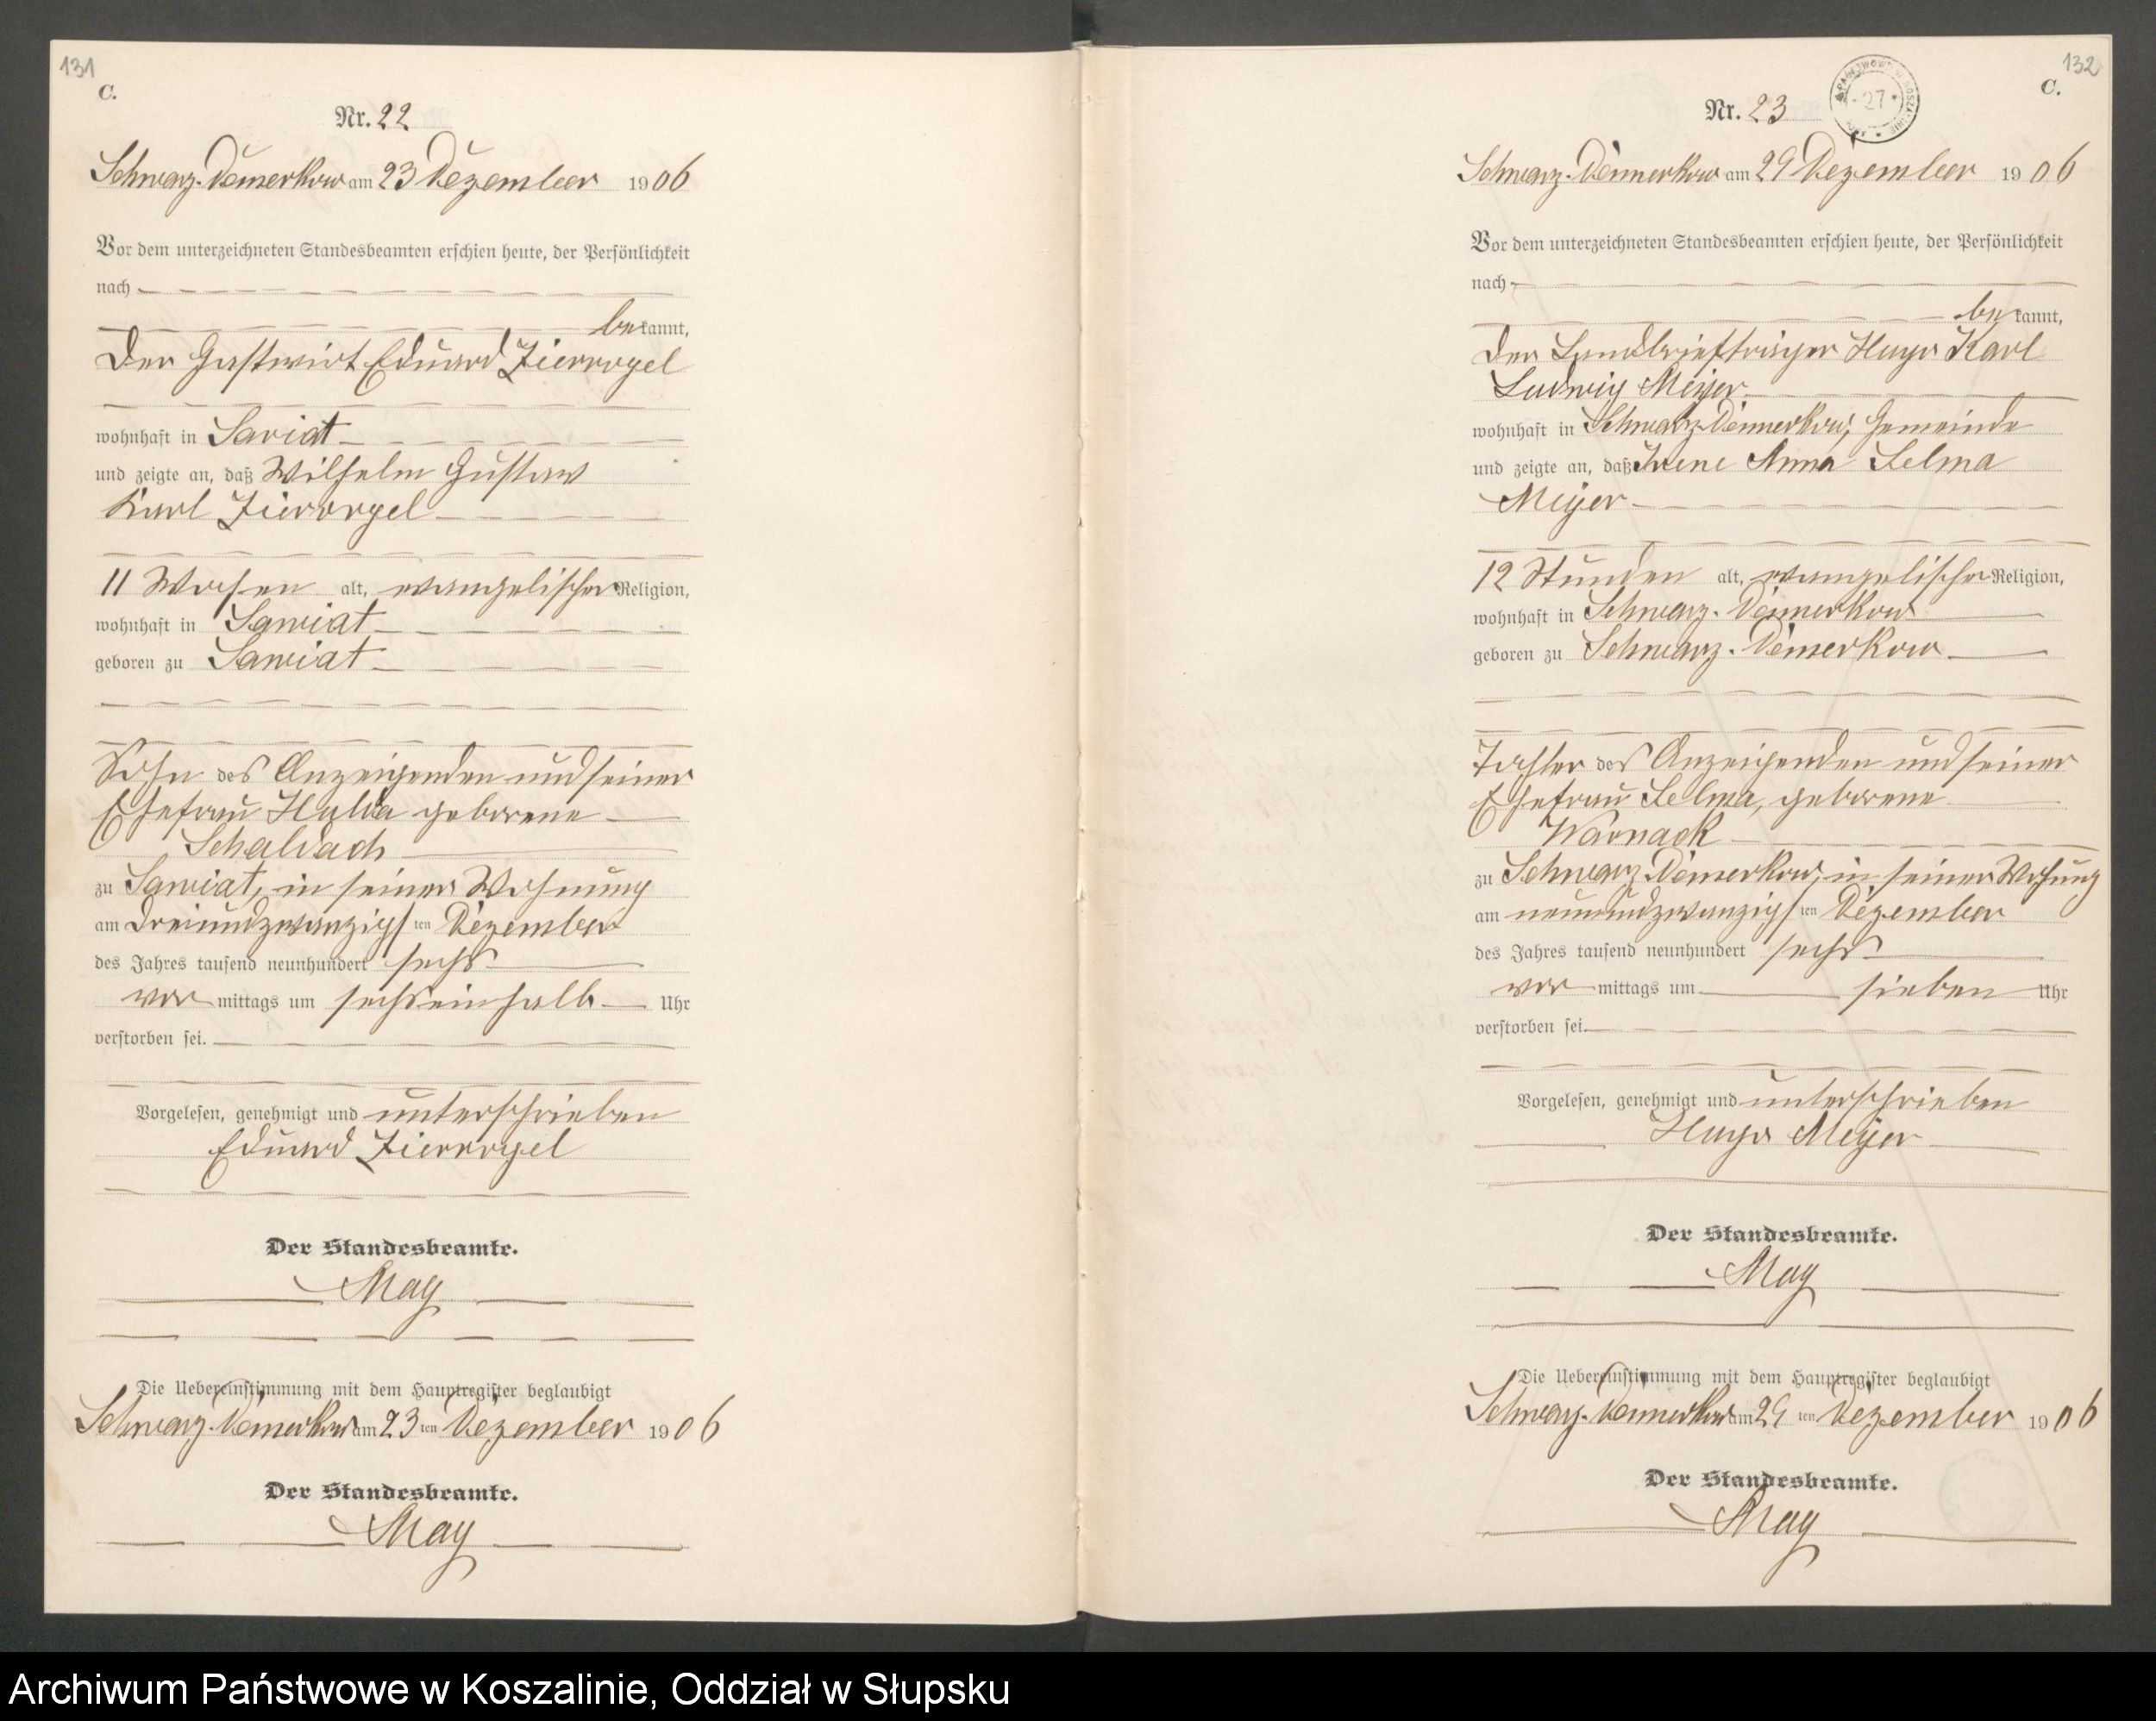 131
C.
Nr. 22
Schwarz-Damerkow am 23 Dezember 1906
Vor dem unterzeichneten Standesbeamten erschien heute, der Persönlichkeit
nach
bekannt,
der Gastwirt Eduard Ziervogel
wohnhaft in Saviat
und zeigte an, daß Wilhelm Gustav
Karl Ziervogel
11 Wochen alt, evangelischer Religion,
wohnhaft in Sawiat
geboren zu Sawiat
Sohn des Anzeigenden und seiner
Ehefrau Hulda geborene
Schaldach
zu Sawiat, in seiner Wohnung
am dreiundzwanzigsten Dezember
des Jahres tausend neunhundert sechs
vor mittags um sechseinhalb Uhr
verstorben sei.
Vorgelesen, genehmigt und unterschrieben
Eduard Ziervogel
Der Standesbeamte.
May
Die Uebereinstimmung mit dem Hauptregister beglaubigt
Schwarz-Damerkow am 23 ten Dezember 1906
Der Standesbeamte.
May
132
C.
Nr. 23
27
Schwarz-Damerkow am 29 Dezember 1906
Vor dem unterzeichneten Standesbeamten erschien heute, der Persönlichkeit
nach
bekannt,
der Landbriefträger Hugo Karl
Ludwig Meyer
wohnhaft in Schwarz Damerkow, Gemeinde
und zeigte an, daß Irene Anna Selma
Meyer
12 Stunden alt, evangelischer Religion,
wohnhaft in Schwarz-Damerkow
geboren zu Schwarz-Damerkow
Tochter des Anzeigenden und seiner
Ehefrau Selma, geborene
Warnack
zu Schwarz Damerkow, in seiner Wohnung
am neunundzwanzigsten Dezember
des Jahres tausend neunhundert sechs
vor mittags um sieben Uhr
verstorben sei.
Vorgelesen, genehmigt und unterschrieben
Hugo Meyer
Der Standesbeamte.
May
Die Uebereinstimmung mit dem Hauptregister beglaubigt
Schwarz-Damerkow am 29 ten Dezember 1906
Der Standesbeamte.
May
Archiwum Państwowe w Koszalinie, Oddział w Słupsku